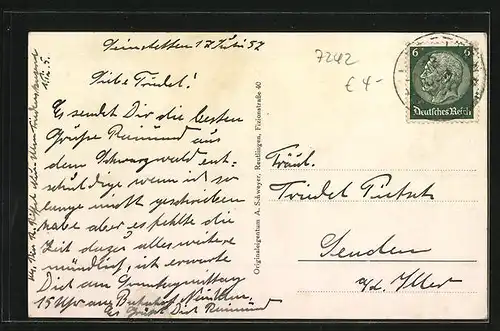 17 Juli 37
Liebe Trudel!
Es sendet Dir die besten
Grüße Raimund aus
dem Schwarzwald ent-
schuldige wenn ich so
lange nicht geschrieben
habe aber es fehlte die
Zeit dazu alles weitere
mündlich, ich erwarte
Dich am Sonntagmittag
15 Uhr am Bahnhof
Es Grüßt Dich Raimund
Originaleigentum A. Schweyer, Reutlingen, Fizionstraße 40
7242
€ 4-
6 6
Deutsches Reich
Fräul.
Trudel Putsch
Senden
a/d. Iller